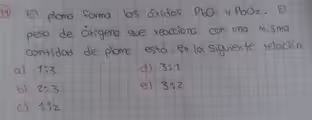 El plomo forma los óxidos PbO y PbO₂. El
peso de oxígeno que reacciona con una misma
cantidad de plomo está en la siguiente relación
a) 1:3 d) 3:1
b) 2:3 e) 3:2
c) 1:2